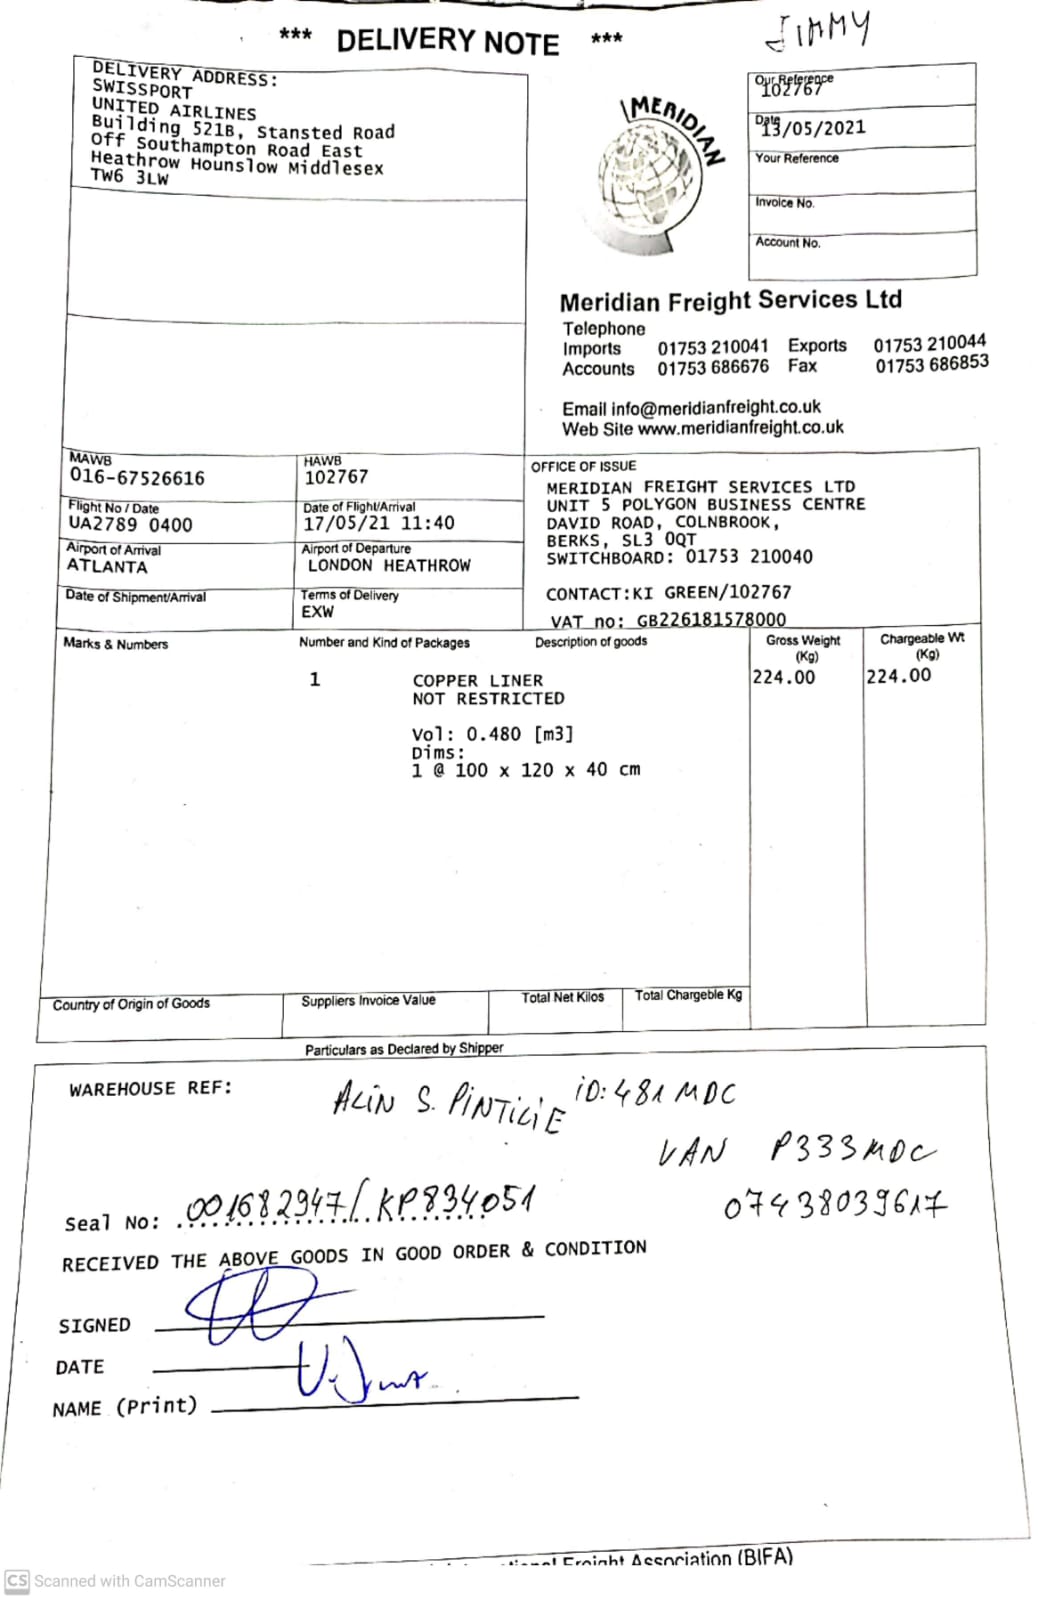 JIMMY
*** DELIVERY NOTE ***
DELIVERY ADDRESS:
SWISSPORT
UNITED AIRLINES
Building 521B, Stansted Road
Off Southampton Road East
Heathrow Hounslow Middlesex
TW6 3LW
MERIDIAN
Our Reference
102767
Date
13/05/2021
Your Reference
Invoice No.
Account No.
Meridian Freight Services Ltd
Telephone
Imports 01753 210041 Exports 01753 210044
Accounts 01753 686676 Fax 01753 686853
Email info@meridianfreight.co.uk
Web Site www.meridianfreight.co.uk
MAWB
016-67526616
HAWB
102767
Flight No / Date
UA2789 0400
Date of Flight/Arrival
17/05/21 11:40
Airport of Arrival
ATLANTA
Airport of Departure
LONDON HEATHROW
Date of Shipment/Arrival
Terms of Delivery
EXW
OFFICE OF ISSUE
MERIDIAN FREIGHT SERVICES LTD
UNIT 5 POLYGON BUSINESS CENTRE
DAVID ROAD, COLNBROOK,
BERKS, SL3 0QT
SWITCHBOARD: 01753 210040
CONTACT:KI GREEN/102767
VAT no: GB226181578000
Marks & Numbers Number and Kind of Packages Description of goods Gross Weight (Kg) Chargeable Wt (Kg)
1 COPPER LINER 224.00 224.00
NOT RESTRICTED
Vol: 0.480 [m3]
Dims:
1 @ 100 x 120 x 40 cm
Country of Origin of Goods Suppliers Invoice Value Total Net Kilos Total Chargeble Kg
Particulars as Declared by Shipper
WAREHOUSE REF:
ALIN S. PINTILIE iD: 481 MDC
VAN P333MDC
Seal No: 001682947/KP834051
07438039617
RECEIVED THE ABOVE GOODS IN GOOD ORDER & CONDITION
SIGNED
DATE
NAME (Print)
Freight Association (BIFA)
CS Scanned with CamScanner